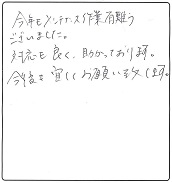 今年もメンテナンス作業有難う
ございました。
対応も良く、助かっております。
今後も宜しくお願い致します。